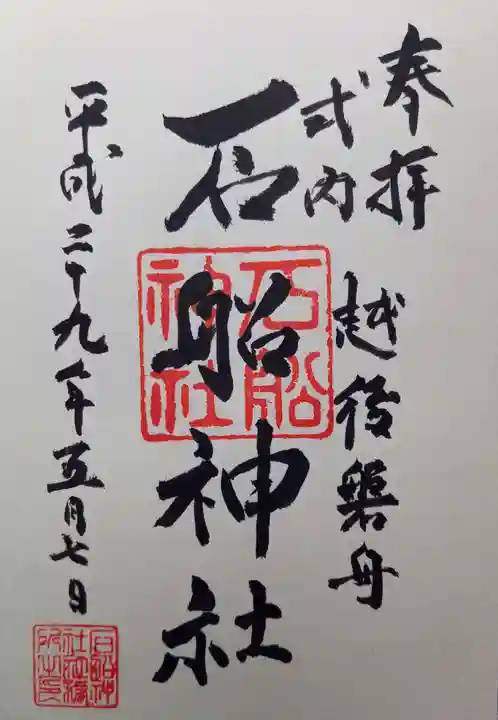 奉拝
式内
越後磐舟
石船神社
石船神社
平成二十九年五月七日
石船神社社務所之印